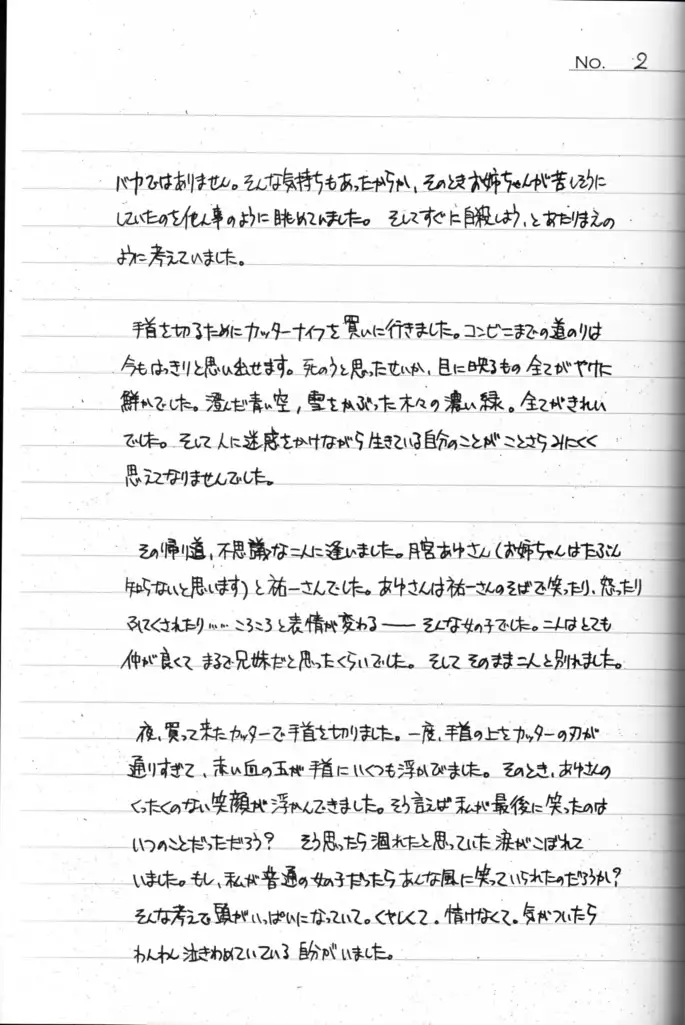 No. 2
バカではありません。そんな気持ちもあったからか、そのときお姉ちゃんが苦しそうに
していたのを他人事のように眺めていました。 そしてすぐに自殺しよう、とあたりまえの
ように考えていました。
手首を切るためにカッターナイフを買いに行きました。コンビニまでの道のりは
今もはっきりと思い出せます。死のうと思ったせいか、目に映るもの全てがやけに
鮮かでした。澄んだ青い空、雪をかぶった木々の濃い緑。全てがきれい
でした。そして人に迷惑をかけながら生きている自分のことがことさらみにくく
思えてなりませんでした。
その帰り道、不思議な二人に逢いました。月宮あゆさん(お姉ちゃんはたぶん
知らないと思います)と祐一さんでした。あゆさんは祐一さんのそばで笑ったり、怒ったり
ふてくされたり……ころころと表情が変わる——そんな女の子でした。二人はとても
仲が良くてまるで兄妹だと思ったくらいでした。そしてそのまま二人と別れました。
夜、買って来たカッターで手首を切りました。一度、手首の上をカッターの刃が
通りすぎて、赤い血の玉が手首にいくつも浮かびました。そのとき、あゆさんの
くったくのない笑顔が浮かんできました。そう言えば私が最後に笑ったのは
いつのことだっただろう? そう思ったら涸れたと思っていた涙がこぼれて
いました。もし、私が普通の女の子だったらあんな風に笑っていられたのだろうか?
そんな考えで頭がいっぱいになっていて。くやしくて。情けなくて。気がついたら
わんわん泣きわめいている自分がいました。